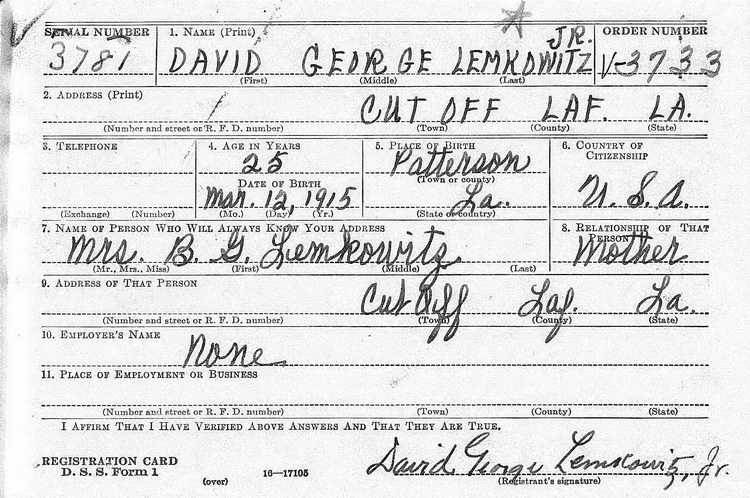 SERIAL NUMBER 1. NAME (Print) ORDER NUMBER
3781 DAVID GEORGE LEMKOWITZ JR. V-3733
(First) (Middle) (Last)
2. ADDRESS (Print)
CUT OFF LAF. LA.
(Number and street or R. F. D. number) (Town) (County) (State)
3. TELEPHONE 4. AGE IN YEARS 5. PLACE OF BIRTH 6. COUNTRY OF CITIZENSHIP
25 Patterson
(Town or county)
DATE OF BIRTH
Mar. 12, 1915 La. U. S. A.
(Exchange) (Number) (Mo.) (Day) (Yr.) (State or country)
7. NAME OF PERSON WHO WILL ALWAYS KNOW YOUR ADDRESS 8. RELATIONSHIP OF THAT PERSON
Mrs. B. G. Lemkowitz Mother
(Mr., Mrs., Miss) (First) (Middle) (Last)
9. ADDRESS OF THAT PERSON
Cut Off Laf. La.
(Number and street or R. F. D. number) (Town) (County) (State)
10. EMPLOYER'S NAME
None
11. PLACE OF EMPLOYMENT OR BUSINESS
(Number and street or R. F. D. number) (Town) (County) (State)
I AFFIRM THAT I HAVE VERIFIED ABOVE ANSWERS AND THAT THEY ARE TRUE.
REGISTRATION CARD David George Lemkowitz, Jr.
D. S. S. Form 1 (over) 16—17105 (Registrant's signature)